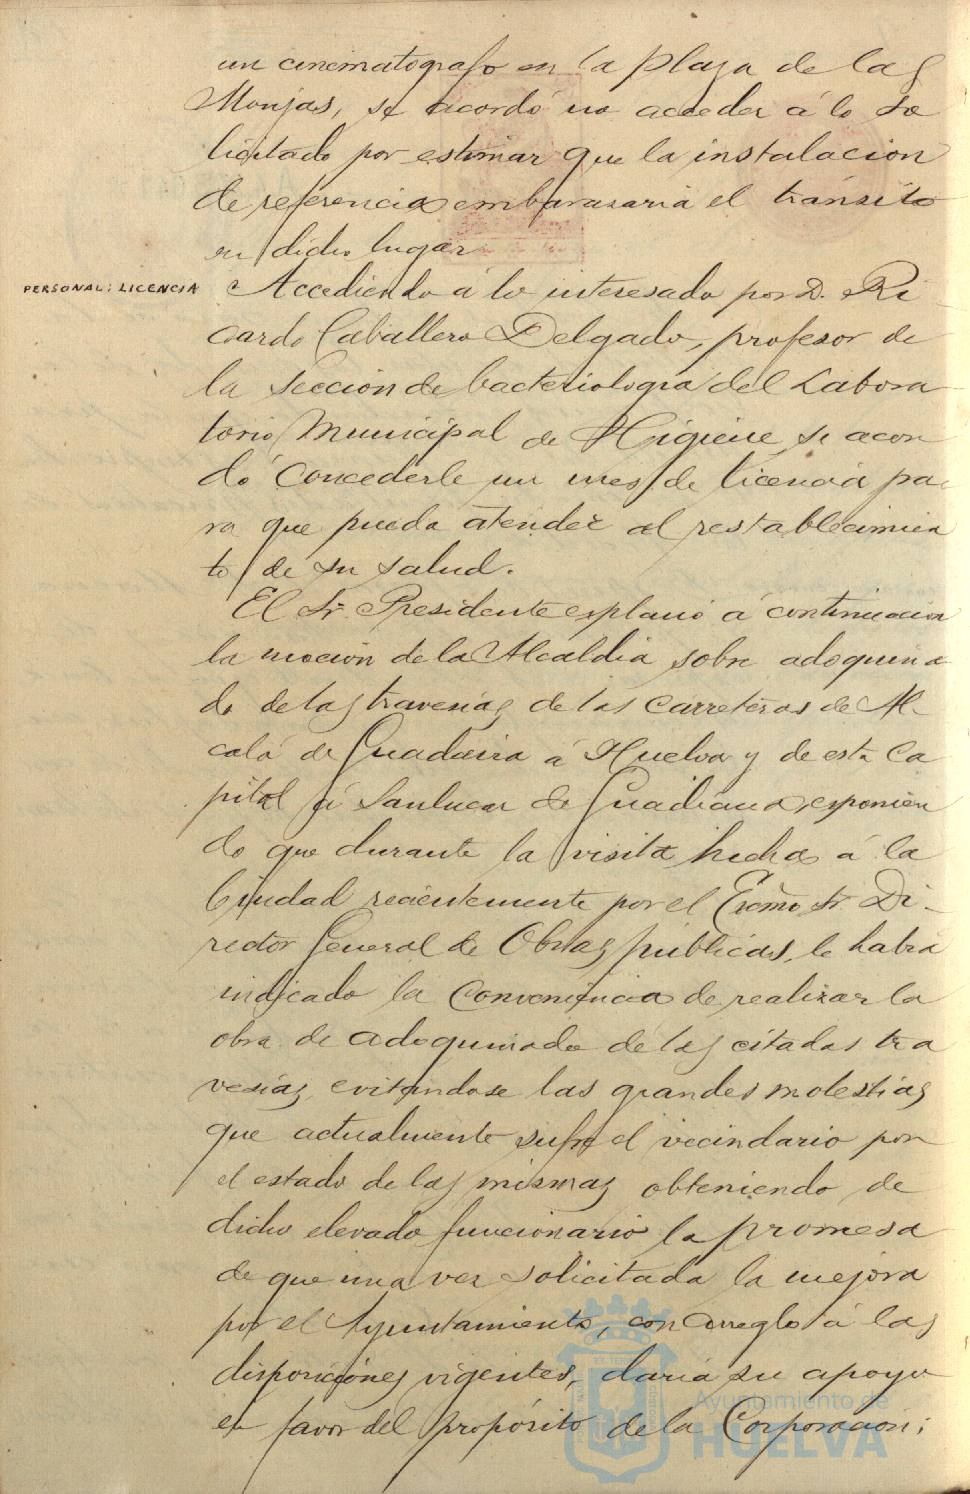 un cinematografo en la plaza de las
Monjas, se acordó no acceder á lo so
licitado por estimar que la instalacion
de referencia embarasaria el tránsito
en dicho lugar
PERSONAL: LICENCIA
Accediendo á lo interesado por D. Ri
cardo Caballero Delgado, profesor de
la seccion de bacteriologia del Labora
torio Municipal de Higiene se acor
dó concederle un mes de licencia pa-
ra que pueda atender al restablecimien
to de su salud.
El Sr. Presidente explanó á continuacion
la mocion de la Alcaldia sobre adoquina
do de las travesias de las carreteras de Al-
calá de Guadaira á Huelva y de esta Ca
pital á Sanlucar de Guadiana, esponien
do que durante la visita hecha á la
Ciudad recientemente por el Excmo Sr. Di-
rector General de Obras públicas, le habia
indicado la conveniencia de realizar la
obra de adoquinado de las citadas tra
vesias, evitandose las grandes molestias
que actualmente sufre el vecindario por
el estado de las mismas obteniendo de
dicho elevado funcionario la promesa
de que una vez solicitada la mejora
por el Ayuntamiento, con arreglo á las
disposiciones vigentes, daria su apoyo
en favor del propósito de la Corporacion;
Ayuntamiento de
HUELVA